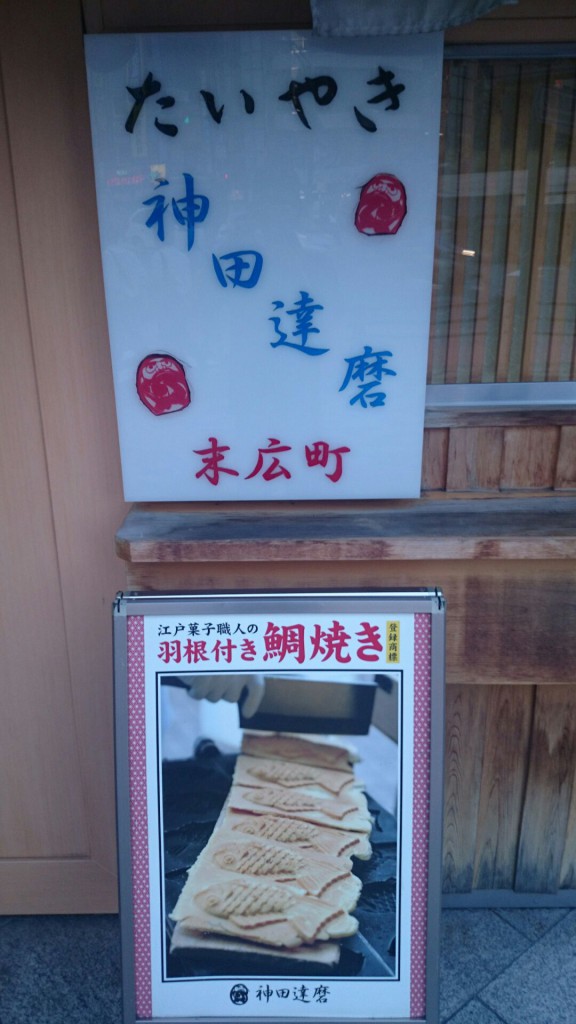 たいやき
神田達磨
末広町
江戸菓子職人の
羽根付き鯛焼き
登録商標
神田達磨